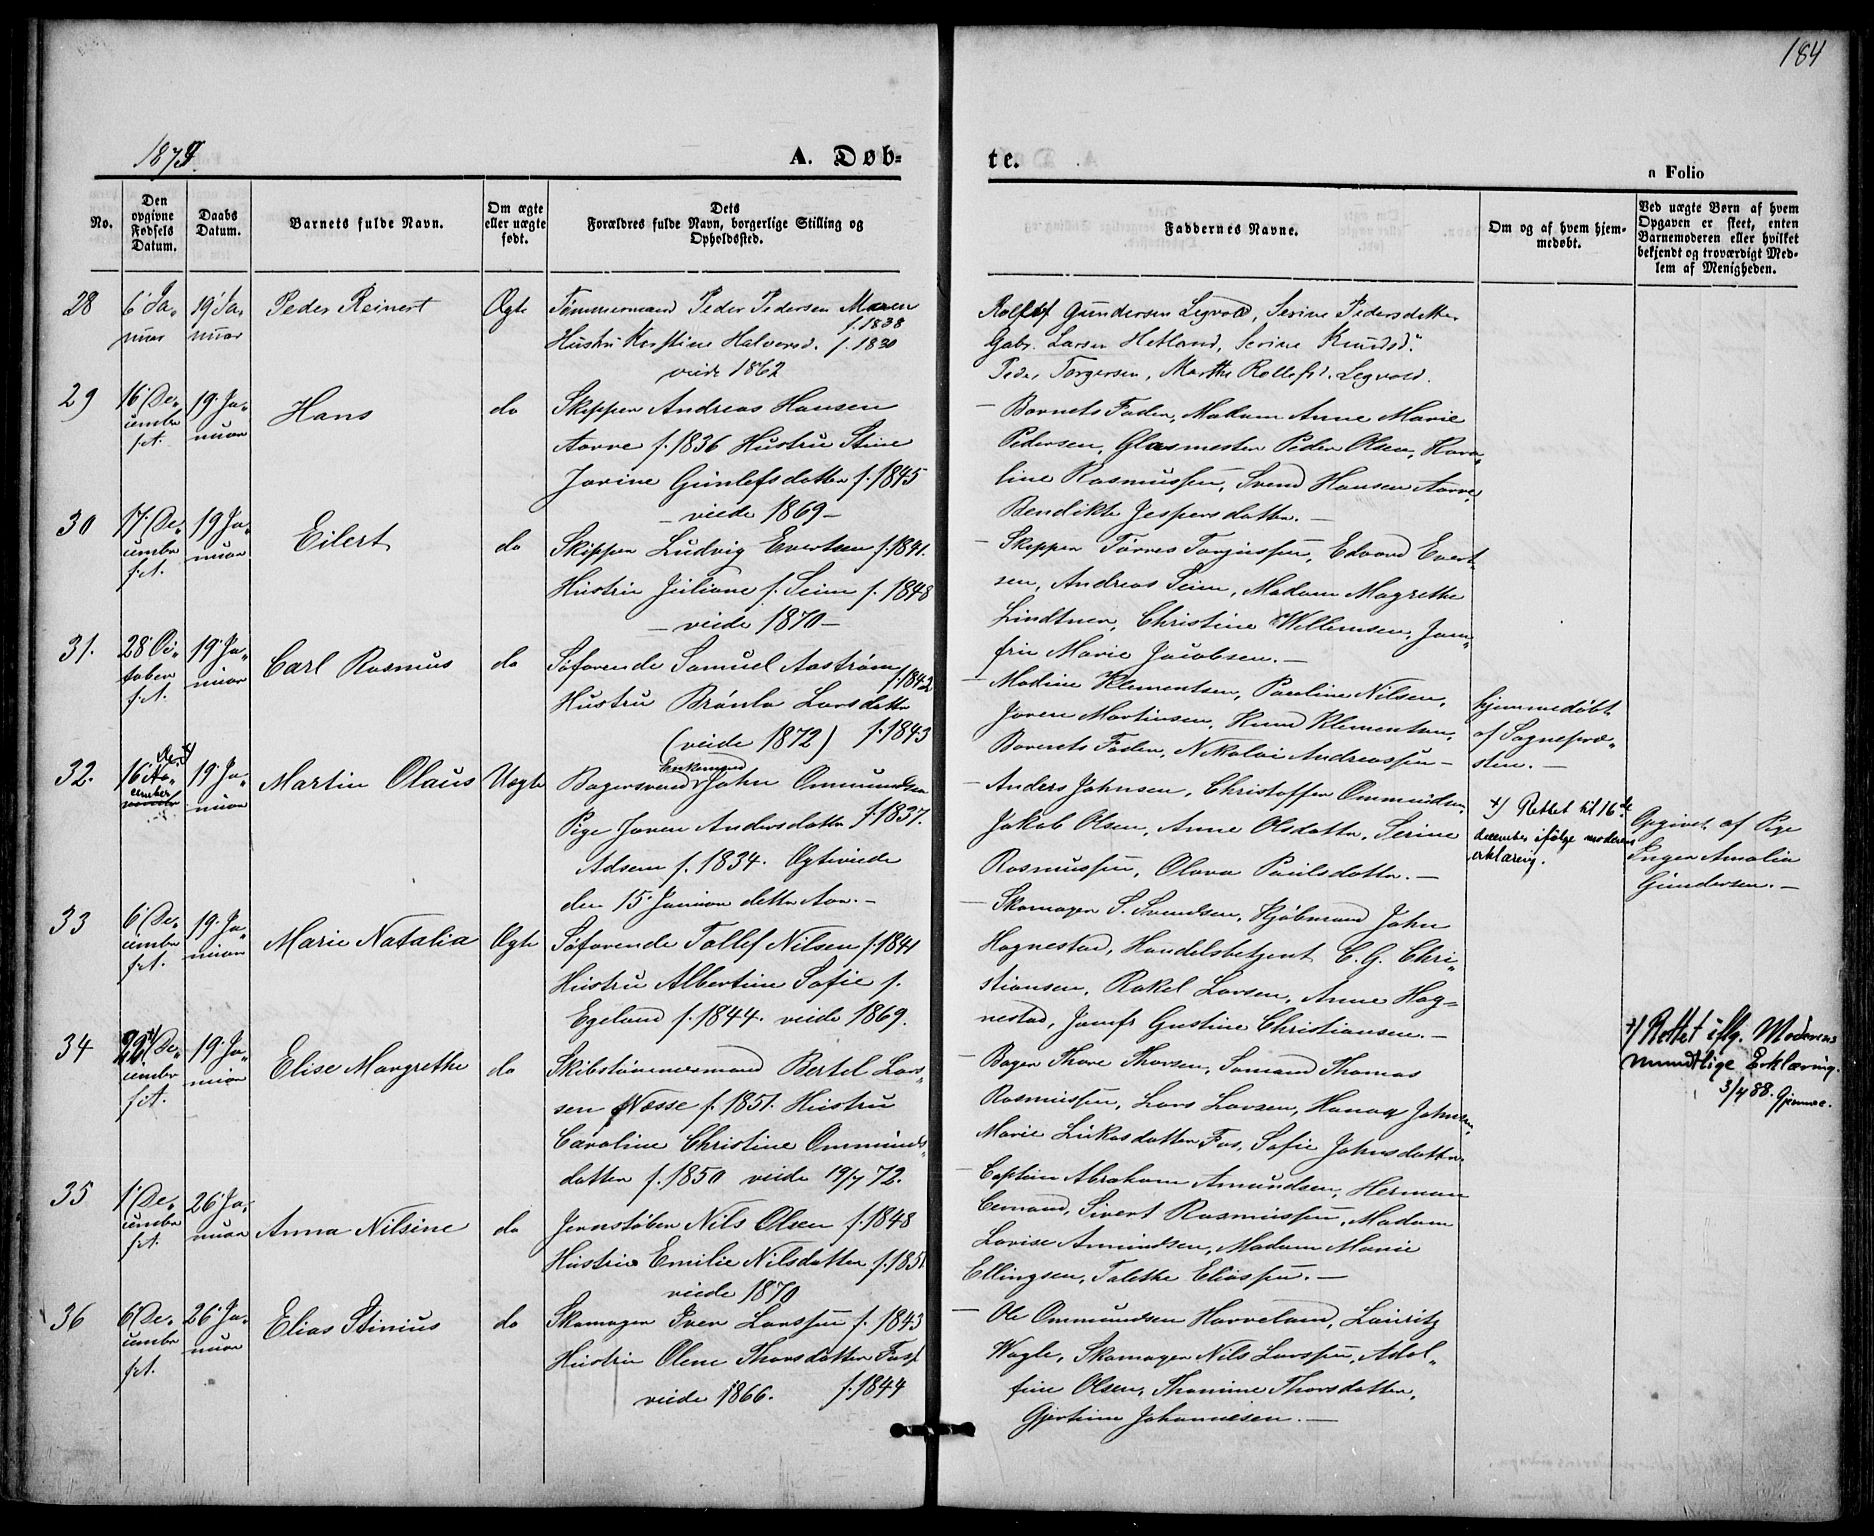 184
1873.
A. Døb-
te.
n Folio
No.
Den opgivne Fødsels Datum.
Daabs Datum.
Barnets fulde Navn.
Om ægte eller uægte født.
Dets Forældres fulde Navn, borgerlige Stilling og Opholdssted.
Faddernes Navne.
Om og af hvem hjem-
medøbt.
Ved uægte Børn af hvem
Opgaven er skeet, enten
Barnemoderen eller hvilket
bekjendt og troværdigt Med-
lem af Menigheden.
28
6 Ja-
nuar
19 Ja-
nuar
Peder Reinert
Ægte
Tømmermand Peder Pedersen Maren
f. 1838
Hustru Kirstine Halvorsd. f. 1830
viede 1862
Gundersen Legvold, Serine Pedersdatter
Gabr. Larsen Hetland, Serine Knudsd.
Peder Torgersen, Marthe Rollefsd. Legvold.
29
16 De-
cembr
f.A.
19 Ja-
nuar
Hans
do
Skipper Andreas Hansen
Aarre f. 1836 Hustru Stine
Jorine Gunlefsdatter f. 1845
— viede 1869 —
— Barnets Fader, Madam Anne Marie
Pedersen, Glasmester Peder Olsen, Karo-
line Rasmussen, Svend Hansen Aarre,
Bendikte Jespersdatter. —
30
17 De-
cembr
f.A.
19 Ja-
nuar
Eilert
do
Skipper Ludvig Evertsen f. 1841.
Hustru Juliane f. Seim f. 1848
— viede 1870 —
— Skipper Tørres Torjussen, Edvard Evert-
sen, Andreas Seim, Madam Magrethe
Lindtner, Christine Willemsen, Jom-
fru Marie Jacobsen. —
31.
28 Oc-
tober
f.A.
19 Ja-
nuar
Carl Rasmus
do
Søfarende Samuel Aastrøm
f. 1842
Hustru Brønla Larsdatter
(viede 1872) f. 1843
— Madine Klementsen, Pauline Nilsen,
Jorere Martinsen, Knud Klementsen,
Barnets Fader, Nikolai Andreassen —
hjemmedøbt
af Sognepræ-
sten. —
32.
16 De-
cember
19 Ja-
nuar
Martin Olaus
Uægte
Enkemand
Bagersvend John Ommundsen
f. 1837.
Pige Joren Andersdatter
Adsem f. 1834. Ægteviede
den 15 Januar dette Aar. —
— Anders Johnsen, Christoffer Ommundsen,
Jakob Olsen, Anne Olsdatter, Serine
Rasmussen, Olava Paulsdatter. —
+) Rettet til 16de
december ifølge moderens
erklæring.
Opgivet af Pige
Inger Amalia
Gundersen. —
33
6 De-
cembr
f.A.
19 Ja-
nuar
Marie Natalia
Ægte
Søfarende Tollef Nilsen f. 1841
Hustru Albertine Sofie f.
Egeland f. 1844. viede 1869.
— Skomager S. Svendsen, Kjøbmand John
Hognestad, Handelsbetjent C. G. Chri-
stiansen, Rakel Larsen, Anne Hog-
nestad, Jomfr Gustine Christiansen. —
34
De-
cembr
f.A.
19 Ja-
nuar
Elise Margrethe
do
Skibstømmermand Bertel Lars-
sen Næsse f. 1851. Hustru
Caroline Christine Ommunds-
datter f. 1850 viede 19/7 72.
— Bager Thore Thorsen, Sømand Thomas
Rasmussen, Lars Larsen, Johnsen,
Marie Lukasdatter Fos, Sofie Johnsdatter
+) Rettet iflg. Moderens
mundtlige Erklæring.
3/4 88.
35
1 De-
cembr
f.A.
26 Ja-
nuar
Anna Nilsine
do
Jernstøber Nils Olsen f. 1848
Hustru Emilie Nilsdatter f. 1851
viede 1870
— Captein Abraham Amundsen, Herman
Sivert Rasmussen, Madam
Lovise Amundsen, Madam Marie
Ellingsen, Talethe Eliassen. —
36
6 De-
cembr
f.A.
26 Ja-
nuar
Elias Stinius
do
Skomager Iver Larssen f. 1843
Hustru Olene Thorsdatter Foss
viede 1866. f. 1844
— Ole Ommundsen Harveland, Lauritz
Wagle, Skomager Nils Larssen, Adol-
fine Olsen, Thomine Thorsdatter,
Gjertine Johannesen. —